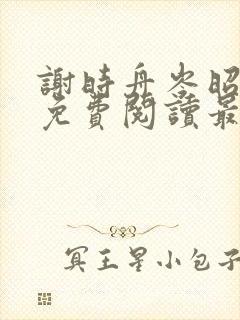 謝時舟岑昭
免費閱讀最
冥王星小包子